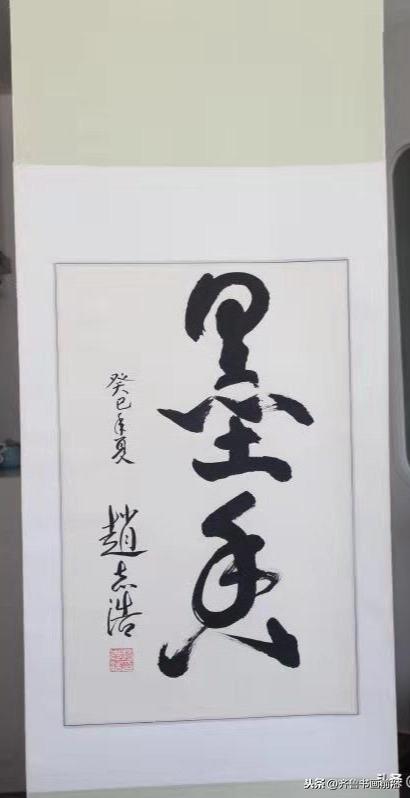 墨
癸巳年夏
趙志浩
头条 @齐鲁书画
头条